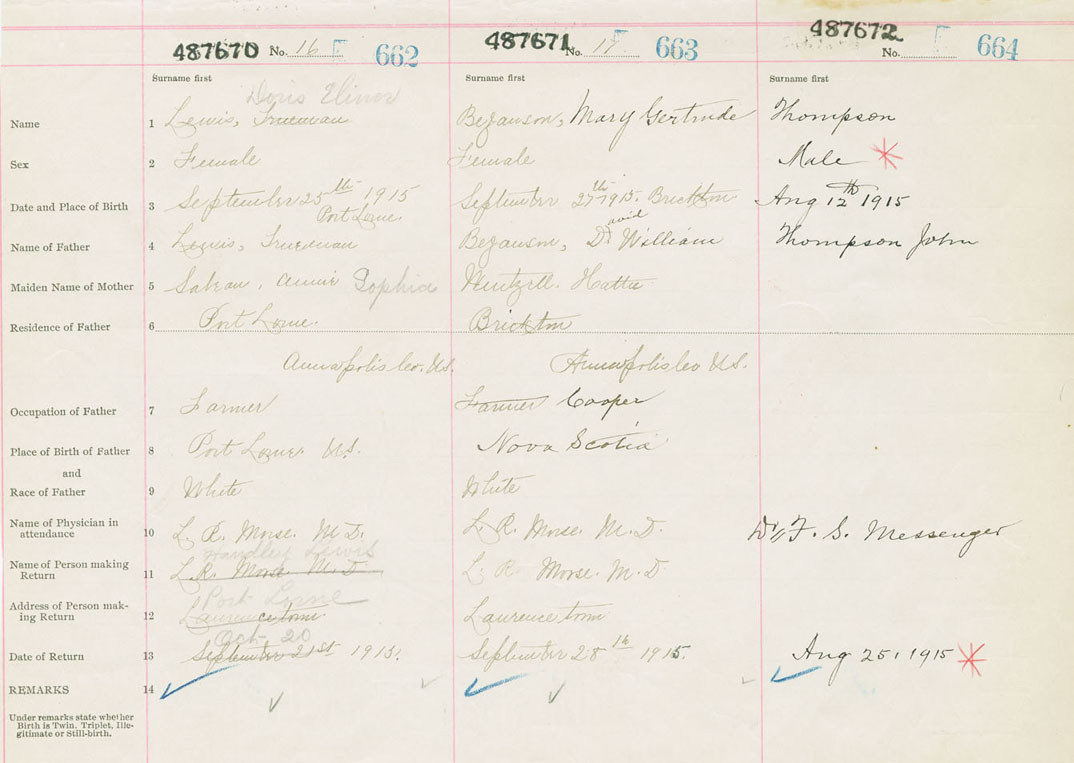 487670 No. 16 F 662
487671 No. 17 F 663
487672 No. F 664
Surname first Surname first Surname first
Doris Elinor
Name 1 Lewis, Frueman Bezanson, Mary Gertrude Thompson
Sex 2 Female Female Male
Date and Place of Birth 3 September 25th 1915 September 27th 1915. Brickton Aug 12th 1915
Port Lorne
avid
Name of Father 4 Lewis, Frueman Bezanson, D. William Thompson John
Maiden Name of Mother 5 Sabean, Annie Sophia Hattie
Residence of Father 6 Port Lorne. Brickton
Annapolis Co. N.S. Annapolis Co N.S.
Occupation of Father 7 Farmer Farmer Cooper
Place of Birth of Father 8 Port Lorne N.S. Nova Scotia
and
Race of Father 9 White White
Name of Physician in
attendance 10 L. R. Morse. M.D. L. R. Morse. M.D. Dr, F. S. Messenger
Handley Lewis
Name of Person making
Return 11 L. R. Morse. M.D L. R. Morse. M.D
Port Lorne
Address of Person mak-
ing Return 12 Laurencetown Laurencetown
Oct 20
Date of Return 13 September 21st 1915. September 28th 1915. Aug 25, 1915
REMARKS 14
Under remarks state whether
Birth is Twin. Triplet, Ille-
gitimate or Still-birth.